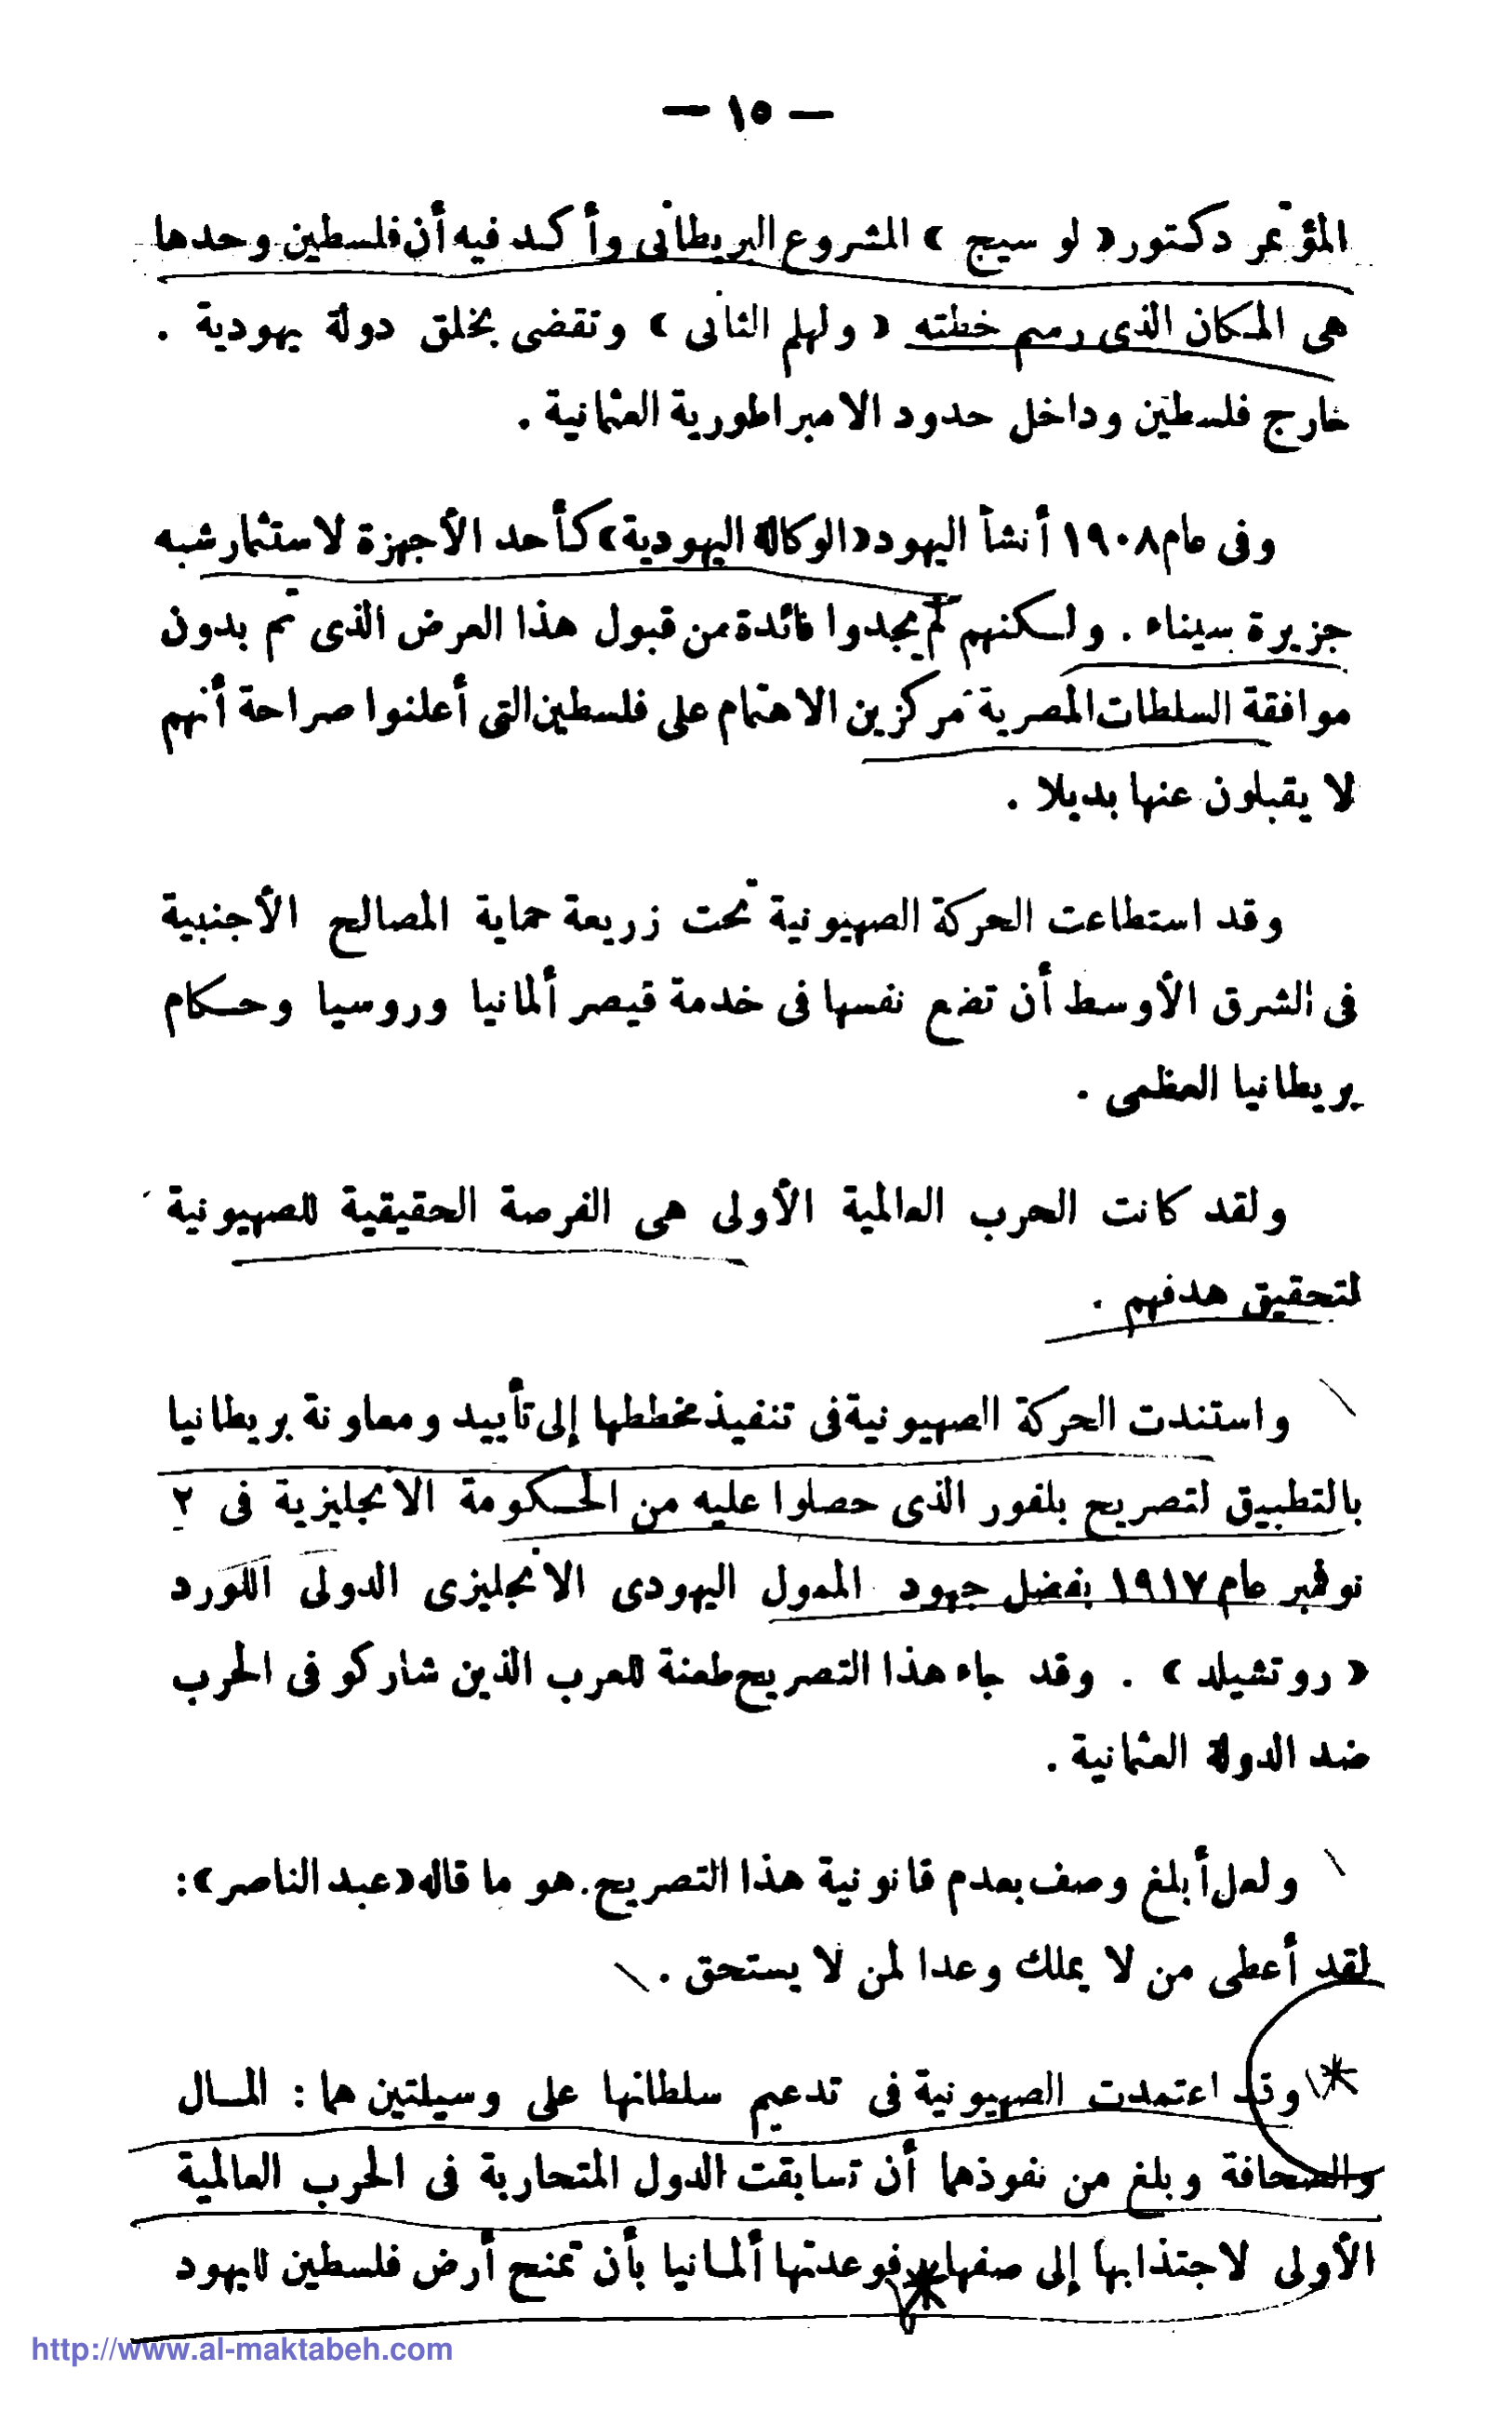 — ١٥ —
المؤتمر دكتور « لو سيج » المشروع البريطانى وأكد فيه أن فلسطين وحدها
هى المكان الذى رسم خطته « ولهلم الثانى » وتقضى بخلق دولة يهودية .
خارج فلسطين وداخل حدود الامبراطورية العثمانية .
وفى عام ١٩٠٨ أنشأ اليهود « الوكالة اليهودية » كأحد الأجهزة لاستثمار شبه
جزيرة سيناء . ولكنهم لم يجدوا فائدة من قبول هذا العرض الذى تم بدون
موافقة السلطات المصرية مركزين الاهتمام على فلسطين التى أعلنوا صراحة أنهم
لا يقبلون عنها بديلا .
وقد استطاعت الحركة الصهيونية تحت زريعة حماية المصالح الأجنبية
فى الشرق الأوسط أن تضع نفسها فى خدمة قيصر ألمانيا وروسيا وحكام
بريطانيا العظمى .
ولقد كانت الحرب العالمية الأولى هى الفرصة الحقيقية للصهيونية
لتحقيق هدفهم .
واستندت الحركة الصهيونية فى تنفيذ مخططها إلى تأييد ومعاونة بريطانيا
بالتطبيق لتصريح بلفور الذى حصلوا عليه من الحكومة الانجليزية فى ٢
نوفمبر عام ١٩١٧ بفضل جهود الممول اليهودى الانجليزى الدولى اللورد
« روتشيلد » . وقد جاء هذا التصريح طعنة للعرب الذين شاركو فى الحرب
ضد الدولة العثمانية .
ولعل أبلغ وصف بعدم قانونية هذا التصريح . هو ما قاله « عبد الناصر » :
لقد أعطى من لا يملك وعدا لمن لا يستحق .
وقد اعتمدت الصهيونية فى تدعيم سلطانها على وسيلتين هما : المال
والصحافة وبلغ من نفوذهما أن تسابقت الدول المتحاربة فى الحرب العالمية
الأولى لاجتذابها إلى صفها فوعدتها ألمانيا بأن تمنح أرض فلسطين لليهود
http://www.al-maktabeh.com